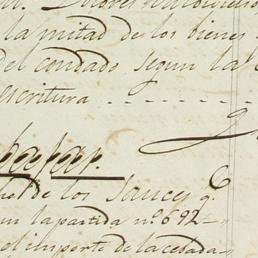 la mitad de los bienes
del condado segun la
escritura
de los Sauces q.
en la partida nº 692
el importe de la cebada